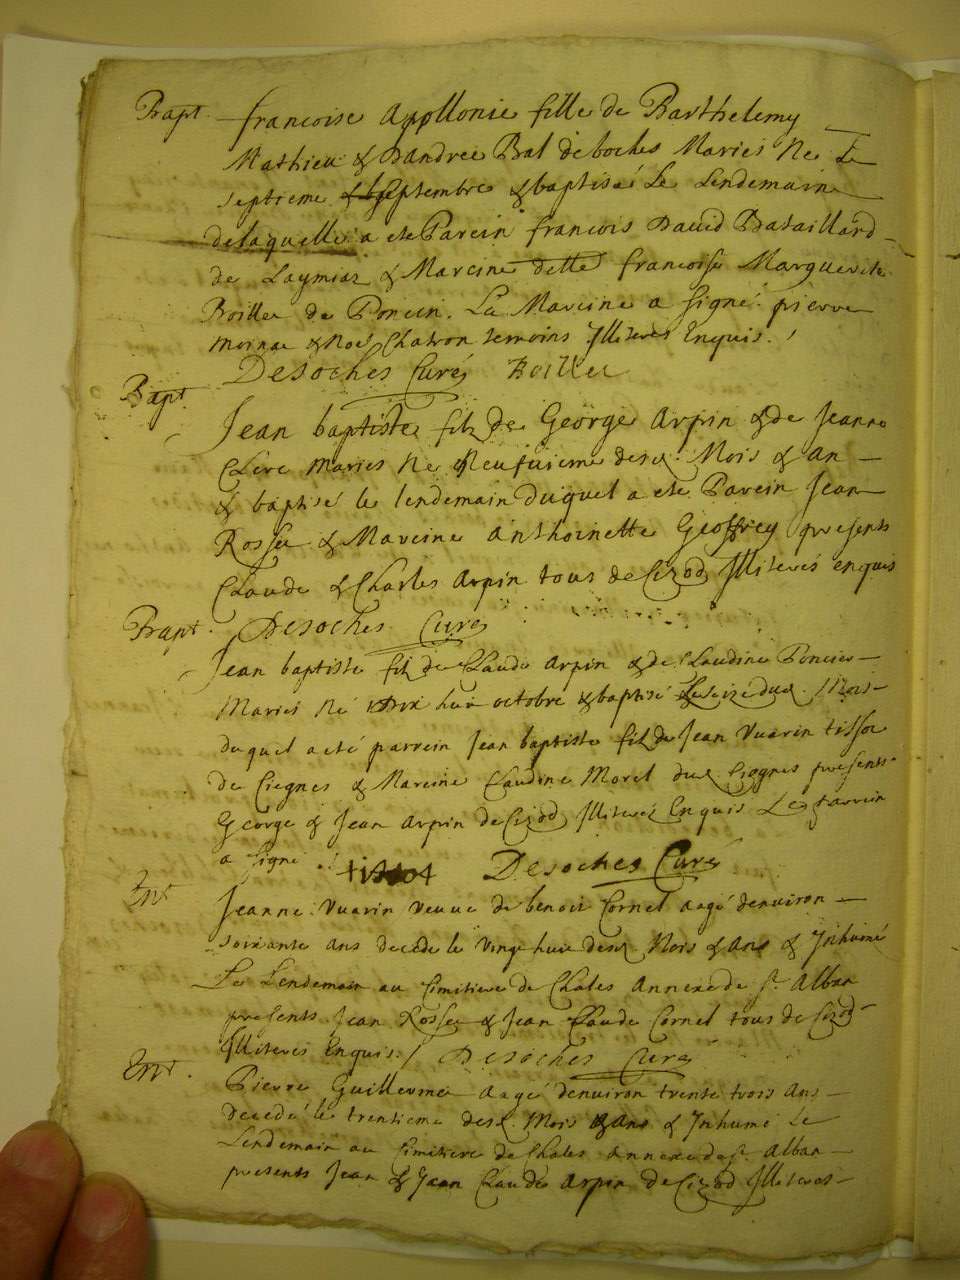 Bapt. francoise Apollonie fille de Barthelemy
Mathieu & Dandree Bal deboches Mariés Ne Le
septieme septembre & baptisé Le Lendemain
delaquelle a ete Parein francois David Bataillard
de Laymiaz & Mareine delle francoise Marguerite
Boillee de Poncin. La Mareine a signé pierre
& Noel Chatron temoins Illiterés Enquis. /
Desoches Curé Boillee
Bapt.
Jean baptiste filz de George Arpin & de Jeanne
Clere Mariés Ne Neufuieme desd. Mois & an
& baptisé le lendemain duquel a ete Parein Jean
Rosset & Mareine Anthoinette Geoffrey presents
Claude & Charles Arpin tous de Cizod Illiterés enquis
Bapt. Desoches Curé
Jean baptiste filz de Claude Arpin & de Claudine Poncier
Mariés Né Dix huit octobre & baptisé Le seize dud. Mois
duquel a eté parrein Jean baptiste filz de Jean Vuarin tissot
de Ciegnes & Mareine Claudine Morel dud. Ciegnes presents
George & Jean Arpin de Cizod Illiterés Enquis Le Parrein
a signé ./. tissot Desoches Curé
Ent.
Jeanne Vuarin Veuue de benoit Cornel aagé denuiron
soixante ans decede le Vingt huit desd. Mois & ans & Inhumé
Le Lendemain au Cimitiere de Chales Annexe de St. Alban
presents Jean Rosset & Jean Claude Cornel tous de Cizod
Illiterés Enquis. / Desoches Curé
Ent.
Pierre Guillerme aagé denuiron trente trois ans
decedé le trentieme desd. Mois & ans & Inhumé Le
Lendemain au Cimitiere de Chales annexe de St. Alban
presents Jean & Jean Claude Arpin de Cizod Illiterés